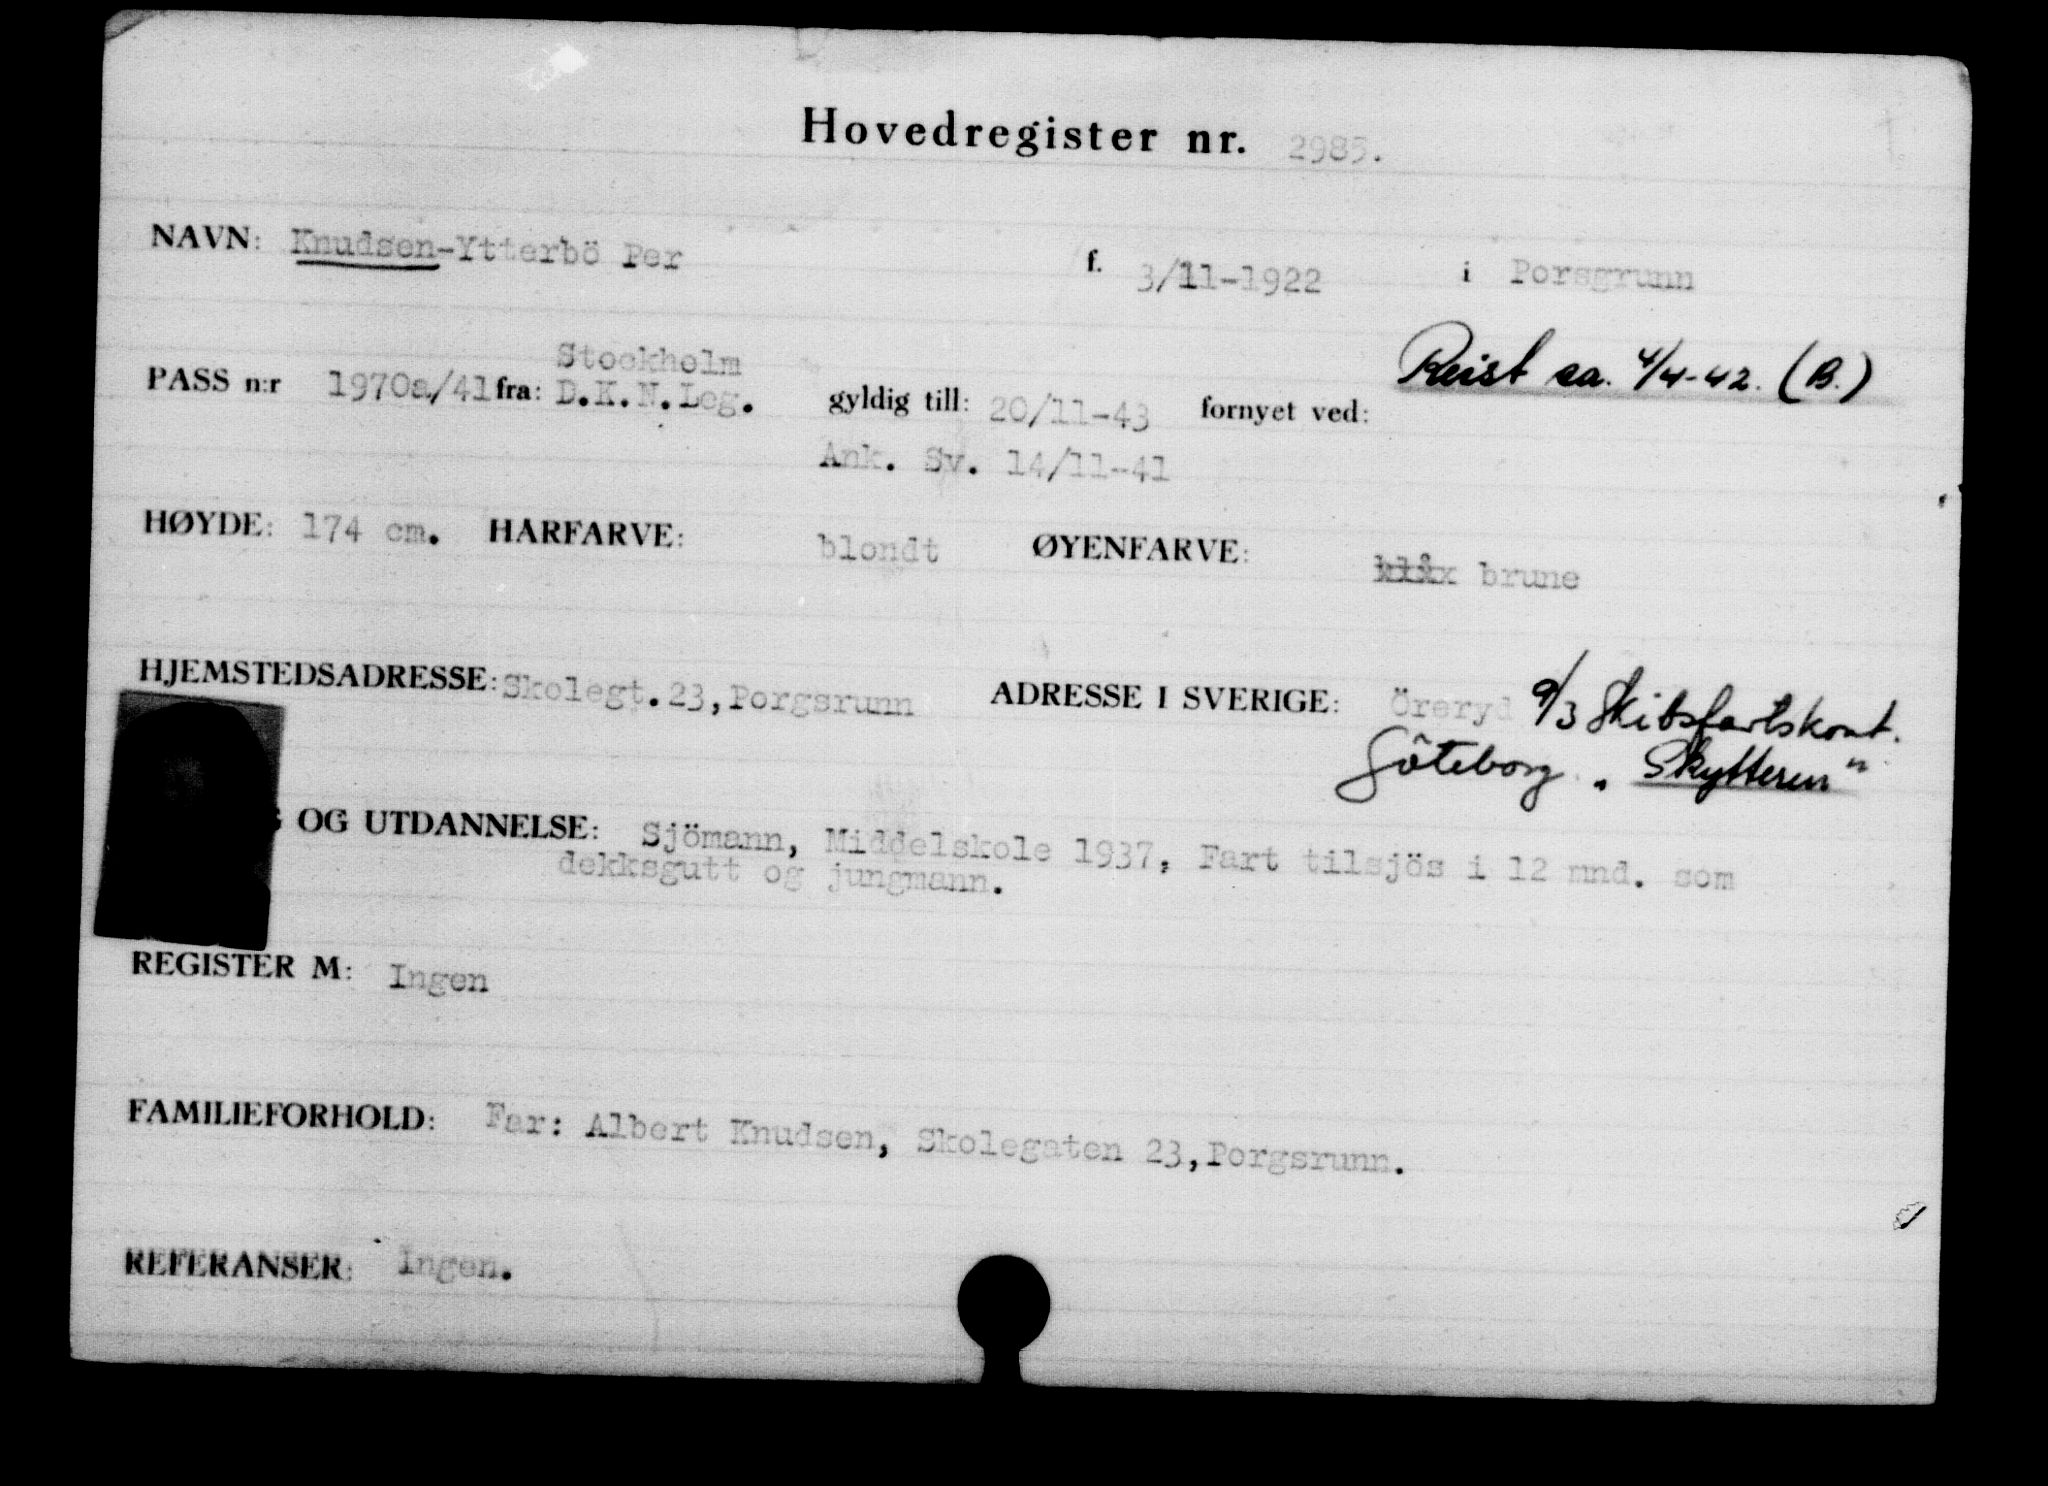 Hovedregister nr. 2985.
NAVN: Knudsen-Ytterbö Per f. 3/11-1922 i Porsgrunn
Reist ca. 4/4-42. (B.)
Stockholm
PASS n:r 1970a/41 fra: D.K.N.Leg. gyldig till: 20/11-43 fornyet ved:
Ank. Sv. 14/11-41
HØYDE: 174 cm. HARFARVE: blondt ØYENFARVE: blåx brune
HJEMSTEDSADRESSE: Skolegt.23,Porgsrunn ADRESSE I SVERIGE: Öreryd 9/3 Skibsfartskont.
Göteborg. "Skytteren"
G OG UTDANNELSE: Sjömann, Middelskole 1937, Fart tilsjös i 12 mnd. som
dekksgutt og jungmann.
REGISTER M: Ingen
FAMILIEFORHOLD: Far: Albert Knudsen, Skolegaten 23,Porgsrunn.
REFERANSER: Ingen.